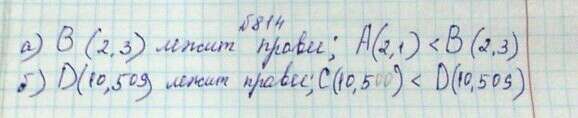 №814
а) В (2,3) лежит правее; А(2,1) < В (2,3)
б) D(10,509 лежит правее; С(10,500) < D(10,509)